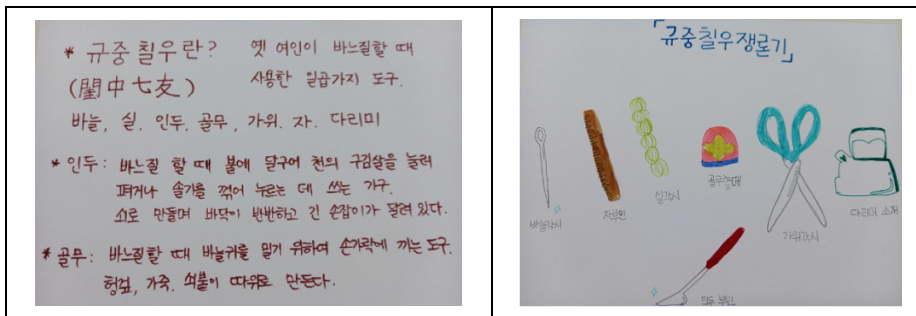 * 규중칠우란? 옛 여인이 바느질할 때
(閨中七友) 사용한 일곱가지 도구.
바늘, 실, 인두, 골무, 가위. 자. 다리미
* 인두: 바느질 할 때 불에 달구어 천의 구김살을 눌러
펴거나 솔기를 꺾어 누르는 데 쓰는 기구.
쇠로 만들며 바닥이 반반하고 긴 손잡이가 달려 있다.
* 골무: 바느질할 때 바늘귀를 밀기 위하여 손가락에 끼는 도구.
헝겊, 가죽. 쇠붙이 따위로 만든다.
「규중칠우쟁론기」
바늘각시
자부인
실각시
가위각시
다리미 소저
인두 부인